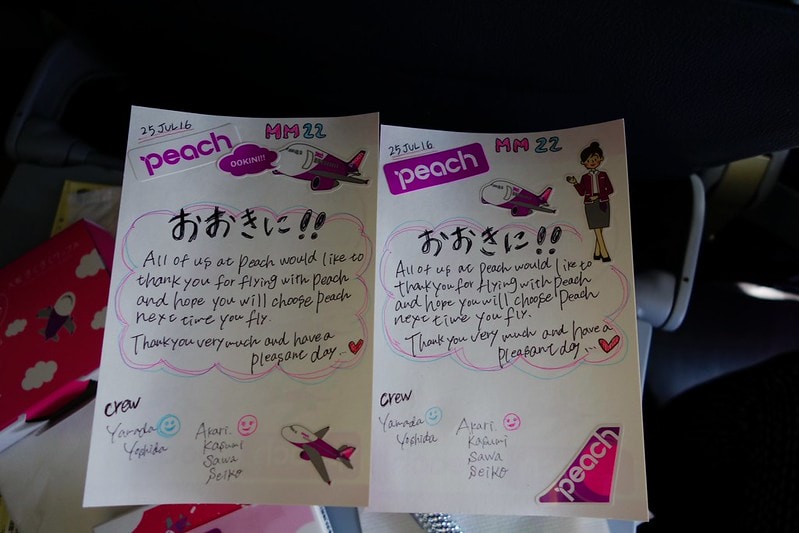 25 JUL 16
MM22
peach
OOKINI!!
おおきに!!
All of us at peach would like to
thank you for flying with peach
and hope you will choose peach
next time you fly.
Thank you very much and have a
pleasant day...
crew
Yamada
Yoshida
Akari.
Kasumi
Sawa
Seiko
25 JUL 16
MM 22
peach
おおきに!!
All of us at peach would like to
thank you for flying with peach
and hope you will choose peach
next time you fly.
Thank you very much and have a
pleasant day...
crew
Yamada
Yoshida
Akari.
Kasumi
Sawa
Seiko
peach